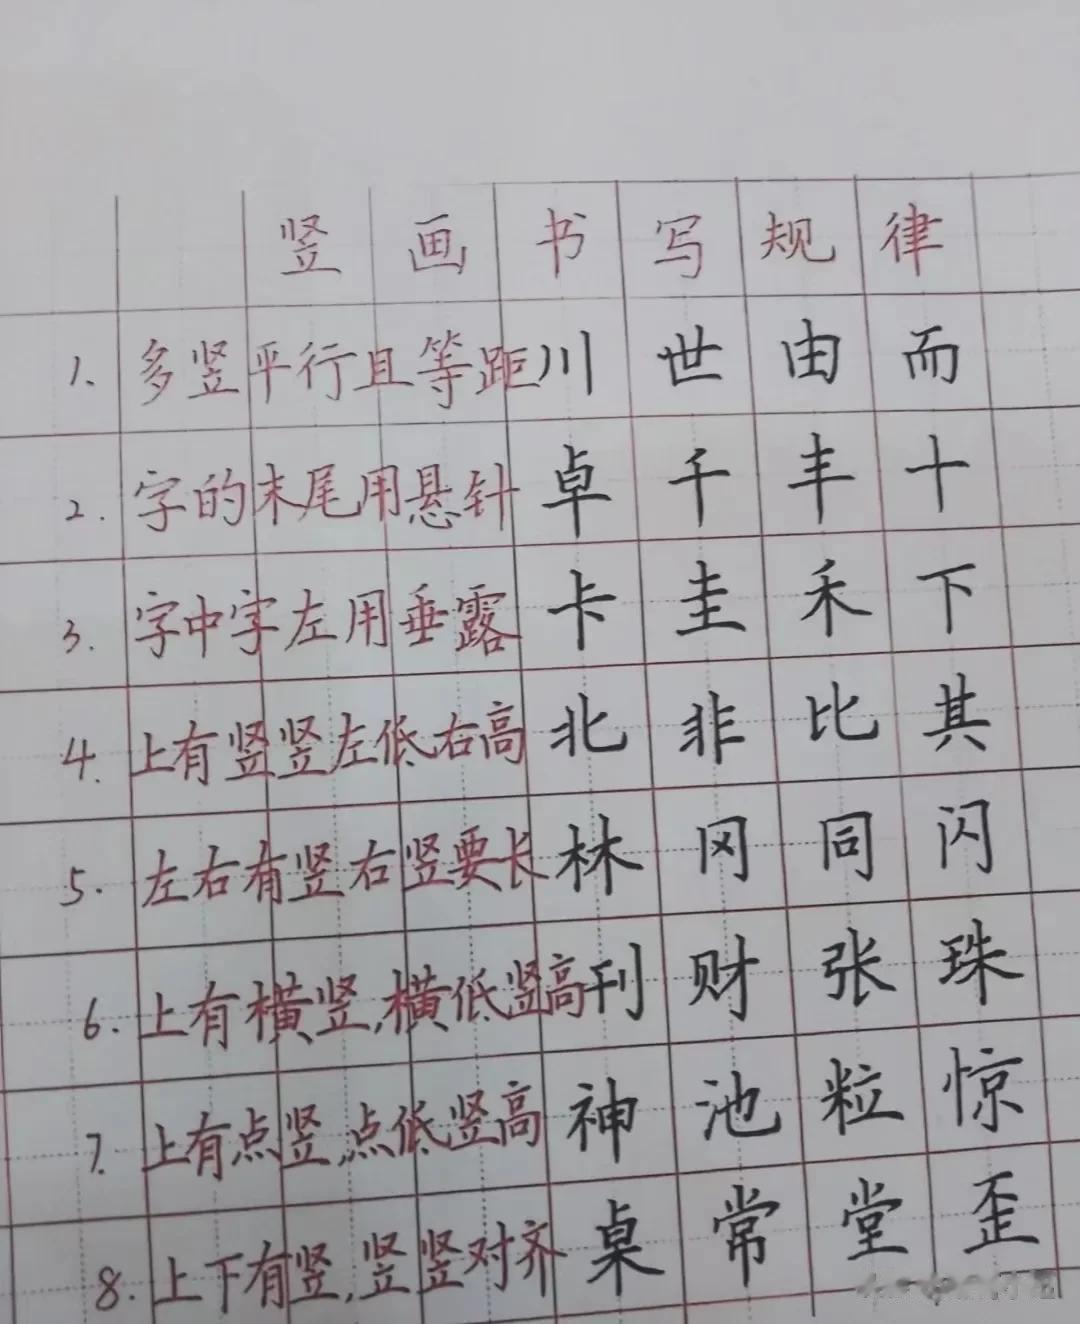 竖画书写规律
1. 多竖平行且等距 川 世 由 而
2. 字的末尾用悬针 卓 千 丰 十
3. 字中字左用垂露 卡 圭 禾 下
4. 上有竖竖左低右高 北 非 比 其
5. 左右有竖右竖要长 林 冈 同 闪
6. 上有横竖,横低竖高 刊 财 张 珠
7. 上有点竖,点低竖高 神 池 粒 惊
8. 上下有竖,竖竖对齐 桌 常 堂 歪